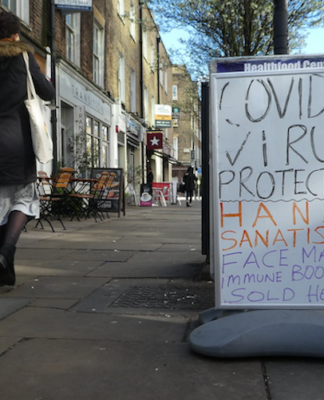 Healthfood Cen
COVID
VIRU
PROTEC
HAN
SANATIS
FACE MA
IMMUNE BOO
SOLD HE